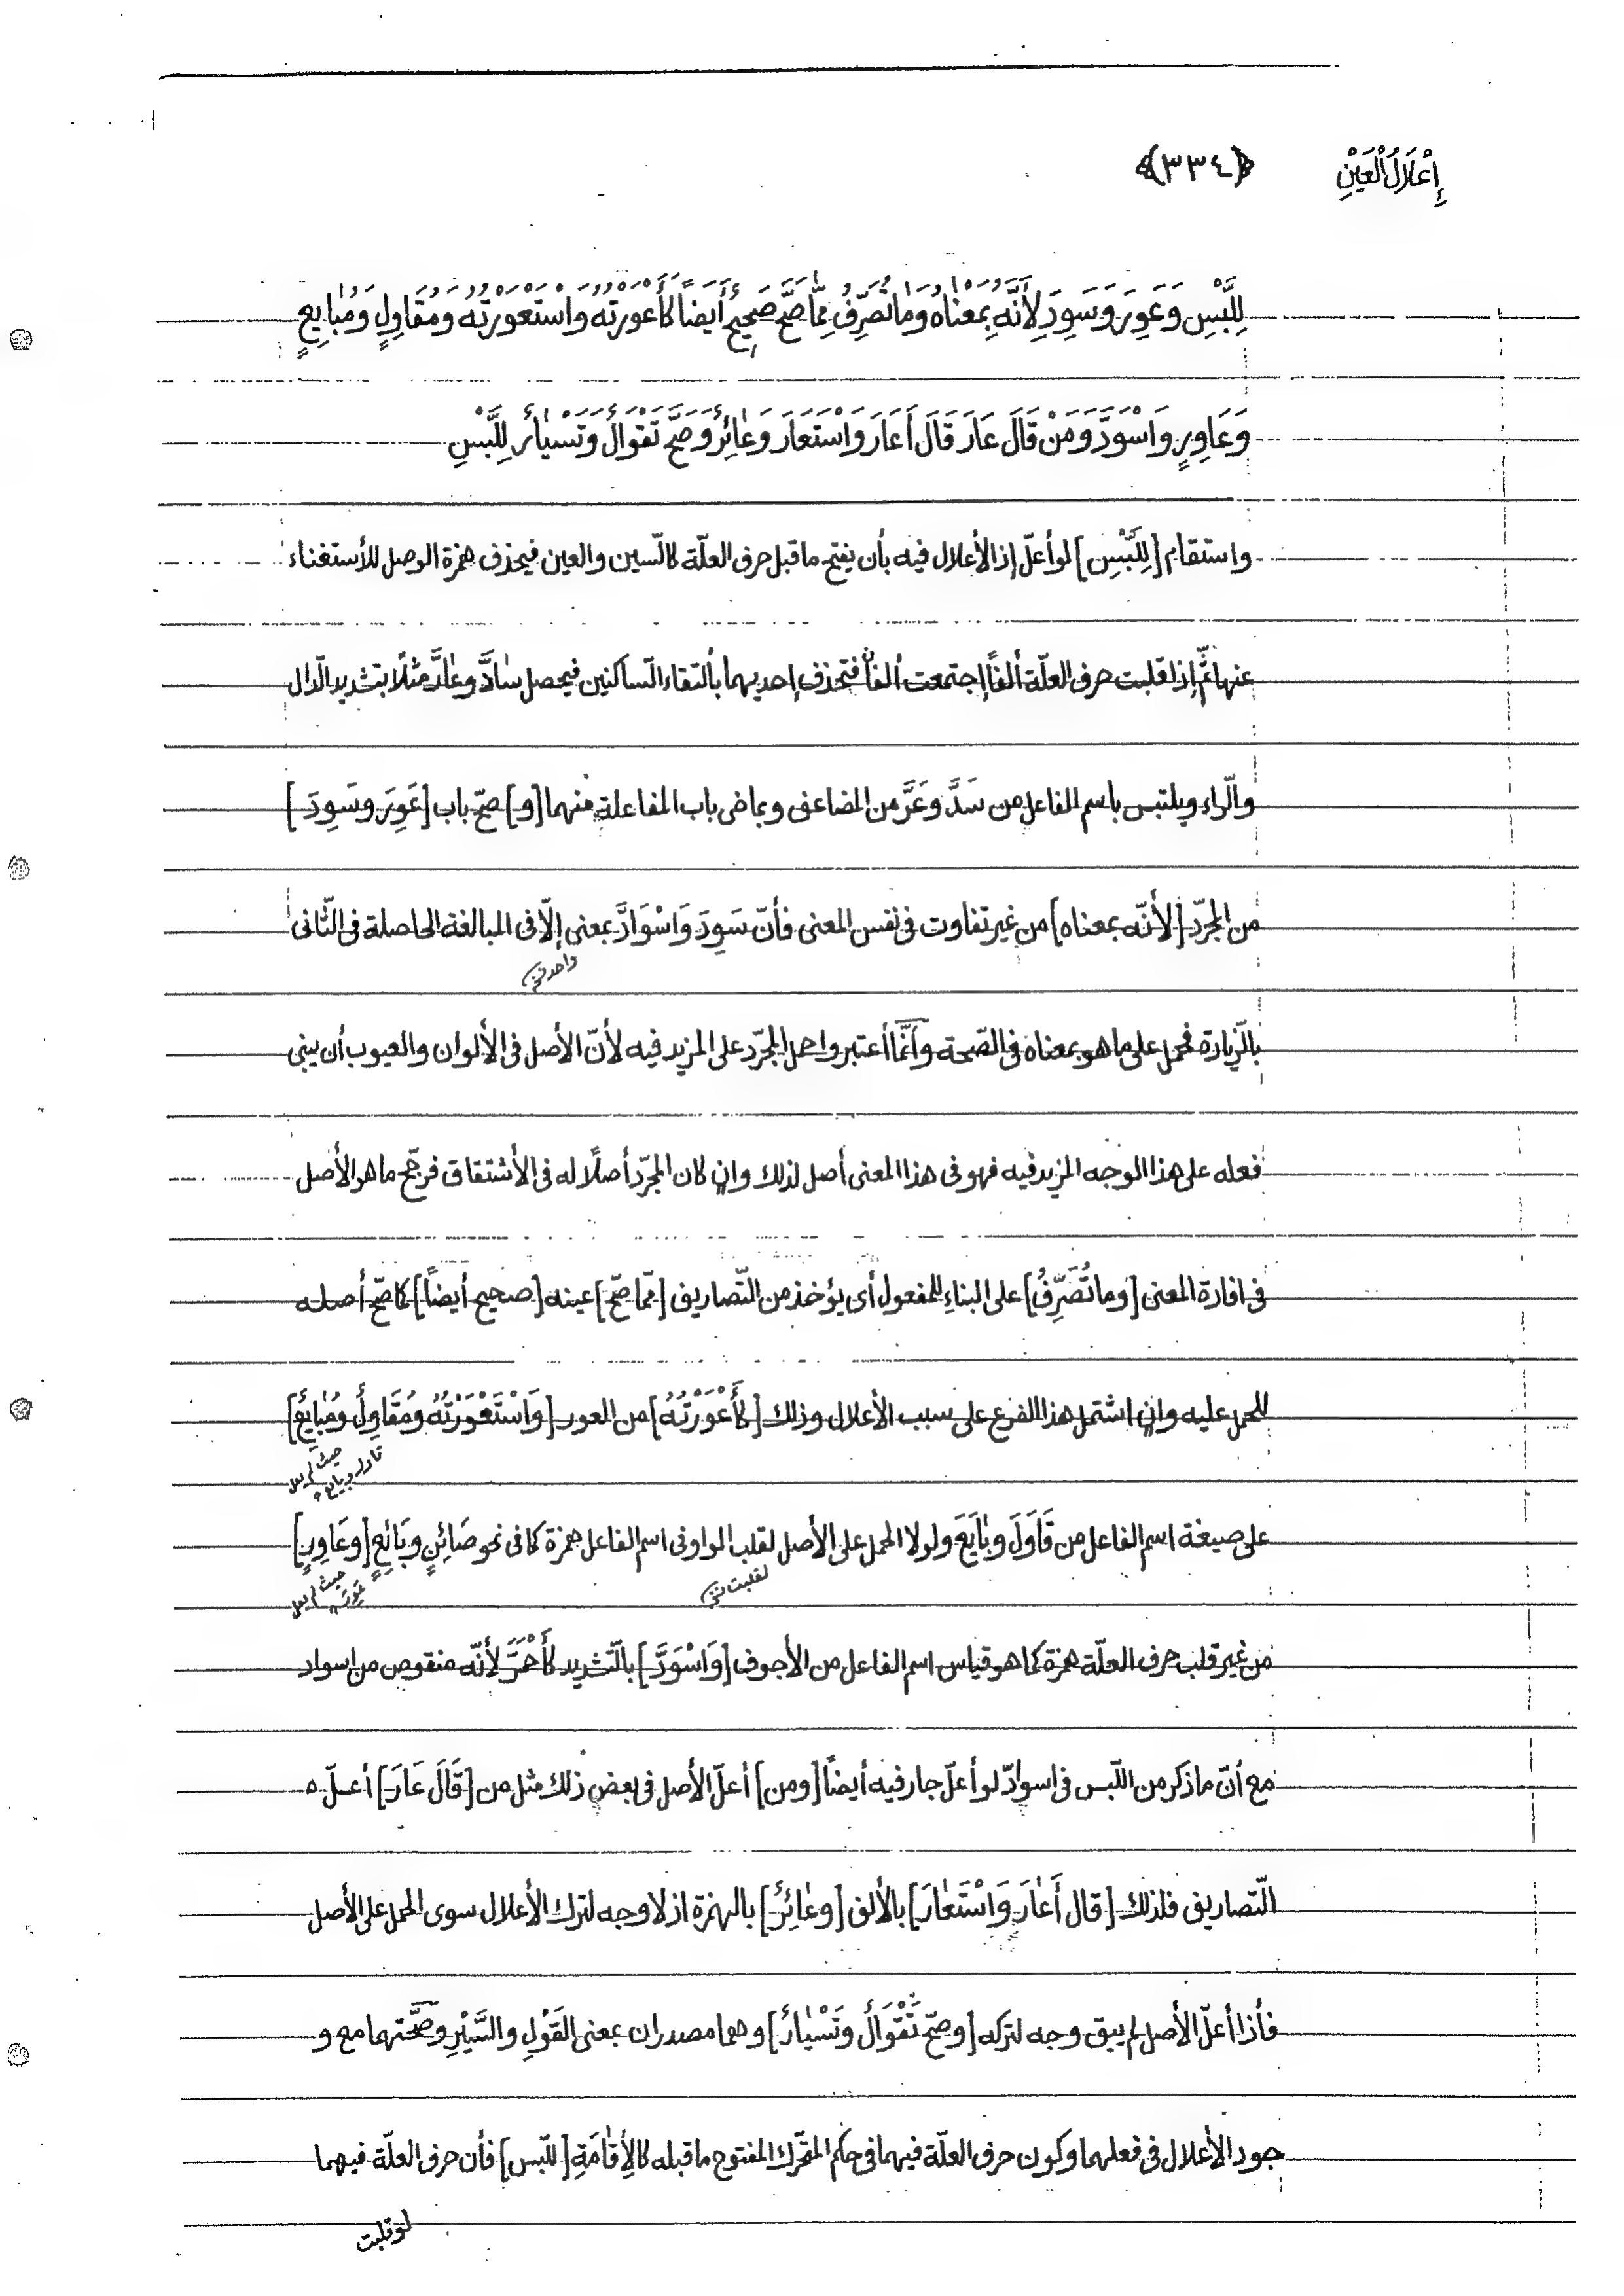 إِعْلَالُ الْعَيْنِ ﴿٣٣٤﴾
لِلَّبْسِ وَعَوِرَ وَسَوِدَ لِأَنَّهُ بِمَعْنَاهُ وَمَا تُصَرِّفُ مِمَّا صَحَّ صَحِيحٌ أَيْضًا كَأَعْوَرْتُهُ وَاسْتَعْوَرْتُهُ وَمُقَاوِلٍ وَمُبَايِعٍ
وَعَاوِرٍ وَاسْوَدَّ وَمَنْ قَالَ عَارَ قَالَ أَعَارَ وَاسْتَعَارَ وَعَائِرٌ وَصَحَّ تَقْوَالٌ وَتَسْيَارٌ لِلَّبْسِ
واستقام [لِلَّبْسِ] لو أعلّ إذ الأعلال فيه بأن يفتح ما قبل حرف العلّة كالسّين والعين فيحذف همزة الوصل للأستغناء
عنها ثمّ إذا قلبت حرف العلّة ألفاً إجتمعت ألفان فتحذف إحديهما بألتقاء السّاكنين فيحصل سَادَّ وعَارَّ مثلًا بتشديد الدّال
والرّاء ويلتبس باسم الفاعل من سَدَّ وعَرَّ من المضاعف وبماضى باب المفاعلة منهما [و] صحّ باب [عَوِرَ وسَوِدَ]
من المجرّد [لأنّه بمعناه] من غير تفاوت فى نفس المعنى فأنّ سَوِدَ وَاسْوَادَّ بمعنى إلّا فى المبالغة الحاصلة فى الثّانى
واحد نخ
بالزّيادة فحمل على ما هو بمعناه فى الصّحة وأنّما أعتبروا حمل المجرّد على المزيد فيه لأنّ الأصل فى الألوان والعيوب أن يبنى
فعله على هذا الوجه المزيد فيه فهو فى هذا المعنى أصل لذلك وإن كان المجرّد أصلًا له فى الأشتقاق فرجّح ما هو الأصل
فى افادة المعنى [وما تُصَرِّفُ] على البناءِ للمفعول أى يؤخذ من التّصاريف [ممّا صَحّ] عينه [صحيح أيضاً] كما صحّ أصله
للحمل عليه وإن اشتمل هذا الفرع على سبب الأعلال وذلك [كَأَعْوَرْتُهُ] من العور [وَاسْتَعْوَرْتُهُ ومُقَاوِلٌ ومُبَايِعٌ]
حيث لم يعل
قاول وبايع
على صيغة اسم الفاعل من قَاوَلَ وبَايَعَ ولولا الحمل على الأصل لقلب الواو فى اسم الفاعل همزة كما فى نحو صَائِنٍ وبَائِعٍ [وعَاوِرٍ]
لقلبت نخ
حيث لم يعل
عَوِرَ
من غير قلب حرف العلّة همزة كما هو قياس اسم الفاعل من الأجوف [وَاسْوَدَّ] بالتّشديد كأَحْمَرَّ لأنّه منقوص من اسواد
مع أنّ ما ذكر من اللّبس فى اسوادّ لو أعلّ جار فيه أيضاً [ومن] أعلّ الأصل فى بعض ذلك مثل من [قَالَ عَارَ] أعلّ ه
التّصاريف فلذلك [قال أَعَارَ وَاسْتَعَارَ] بالألف [وعَائِرٌ] بالهمزة اذ لا وجه لترك الأعلال سوى الحمل على الأصل
فأذا أعلّ الأصل لم يبق وجه لتركه [وصحّ تَقْوَالٌ وتَسْيَارٌ] وهما مصدران بمعنى القَوْلِ والسَّيْرِ وصَحّتهما مع و
جود الأعلال فى فعلهما وكون حرف العلّة فيهما فى حكم المتحرّك المفتوح ما قبله كالأِقَامَةِ [للّبس] فأن حرف العلّة فيهما
لو قلبت